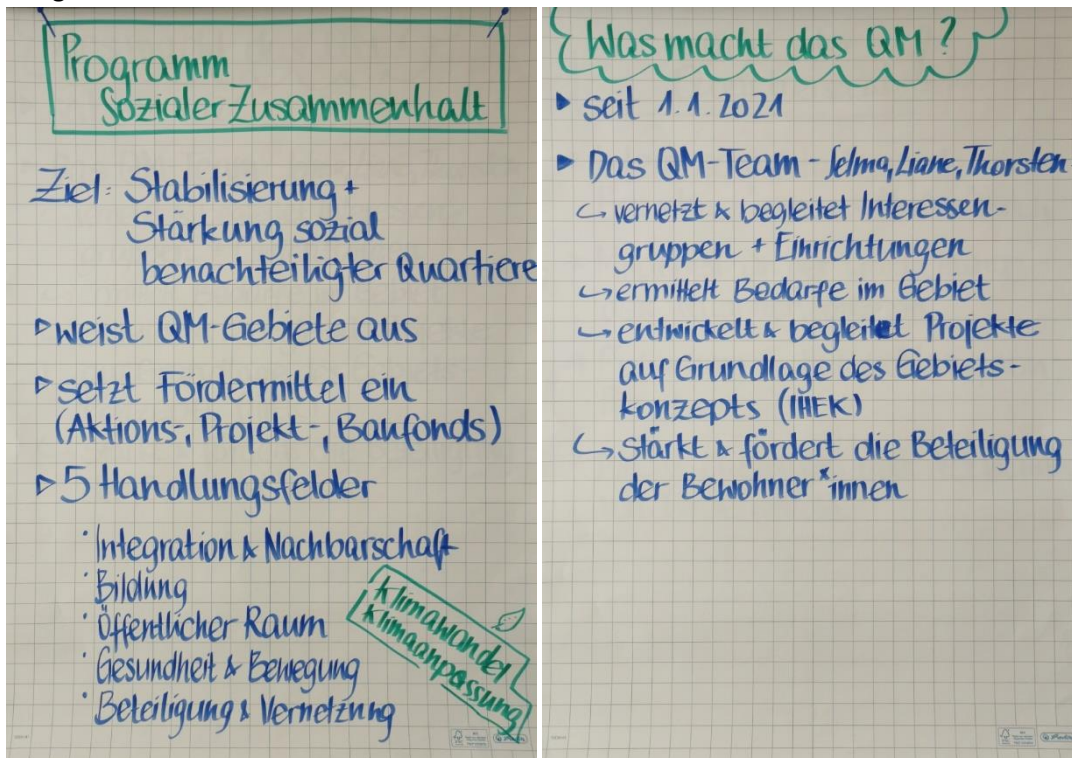 Programm
Sozialer Zusammenhalt
Ziel: Stabilisierung +
Stärkung sozial
benachteiligter Quartiere
▹weist QM-Gebiete aus
▹setzt Fördermittel ein
(Aktions-, Projekt-, Baufonds)
▹5 Handlungsfelder
· Integration & Nachbarschaft
· Bildung
· Öffentlicher Raum
· Gesundheit & Bewegung
· Beteiligung & Vernetzung
Klimawandel
Klimaanpassung
Was macht das QM?
▸ seit 1.1.2021
▸ Das QM-Team - Selma, Liane, Thorsten
↪ vernetzt & begleitet Interessen-
gruppen + Einrichtungen
↪ ermittelt Bedarfe im Gebiet
↪ entwickelt & begleitet Projekte
auf Grundlage des Gebiets-
konzepts (IHEK)
↪ stärkt & fördert die Beteiligung
der Bewohner*innen